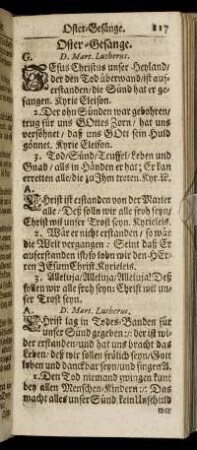 Oster-Gesänge. 217
Oster-Gesänge.
G. D. Mart. Lutherus.
JEsus Christus unser Heyland/
der den Tod überwand/ist auf-
erstanden/die Sünd hat er ge-
fangen. Kyrie Eleison.
2. Der ohn Sünden war gebohren/
trug für uns GOttes Zorn/ hat uns
versöhnet/ daß uns GOtt sein Huld
gönnet. Kyrie Eleison.
3. Tod/Sünd/Teuffel/Leben und
Gnad/ alls in Händen er hat; Er kan
erretten alle/die zu Jhm treten. Kyr. ꝛc.
A.
CHrist ist erstanden von der Marter
alle/Deß solln wir alle froh seyn/
Christ wil unser Trost seyn. Kyrieleis.
2. Wär er nicht erstanden/ so wär
die Welt vergangen: Seint daß Er
auferstanden ist/so lobn wir den HEr-
ren JEsum Christ. Kyrieleis.
3. Alleluja/Alleluja/Alleluja! Deß
sollen wir alle froh seyn: Christ wil un-
ser Trost seyn.
A. D. Mart. Lutherus.
CHrist lag in Todes-Banden für
unser Sünd gegeben :/: der ist wi-
der erstanden/und hat uns bracht das
Leben/ deß wir sollen frölich seyn/Gott
loben und danckbar seyn/und singen A.
2. Den Tod niemand zwingen kunt
bey allen Menschen-Kindern :/: Das
macht alles unser Sünd kein Unschuld
war